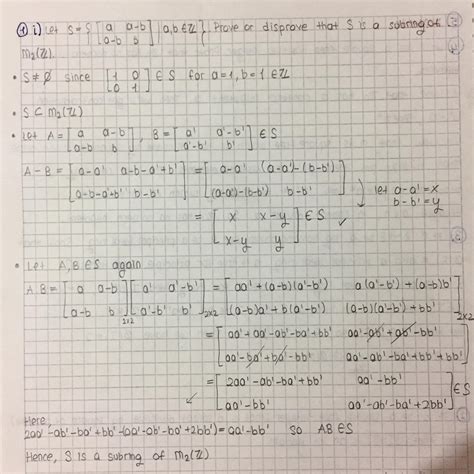 ① i) Let S = { [ a a-b / a-b b ] | a,b ∈ ℤ }. Prove or disprove that S is a subring of
M₂(ℤ).
• S ≠ ∅ since [ 1 0 / 0 1 ] ∈ S for a=1, b=1 ∈ ℤ
• S ⊂ M₂(ℤ)
• Let A = [ a a-b / a-b b ], B = [ a' a'-b' / a'-b' b' ] ∈ S
A-B = [ a-a' a-b-a'+b' / a-b-a'+b' b-b' ] = [ a-a' (a-a')-(b-b') / (a-a')-(b-b') b-b' ]
let a-a' = x
b-b' = y
= [ x x-y / x-y y ] ∈ S ✓
• Let A,B ∈ S again
A.B = [ a a-b / a-b b ]2x2 [ a' a'-b' / a'-b' b' ]2x2 = [ aa'+(a-b)(a'-b') a(a'-b')+(a-b)b' / (a-b)a'+b(a'-b') (a-b)(a'-b')+bb' ]2x2
= [ aa'+aa'-ab'-ba'+bb' aa'-ab'+ab'-bb' / aa'-ba'+ba'-bb' aa'-ab'-ba'+bb'+bb' ]
= [ 2aa'-ab'-ba'+bb' aa'-bb' / aa'-bb' aa'-ab'-ba'+2bb' ] ∈ S
✓
Here,
2aa'-ab'-ba'+bb'-(aa'-ab'-ba'+2bb') = aa'-bb' so AB ∈ S
Hence, S is a subring of M₂(ℤ)